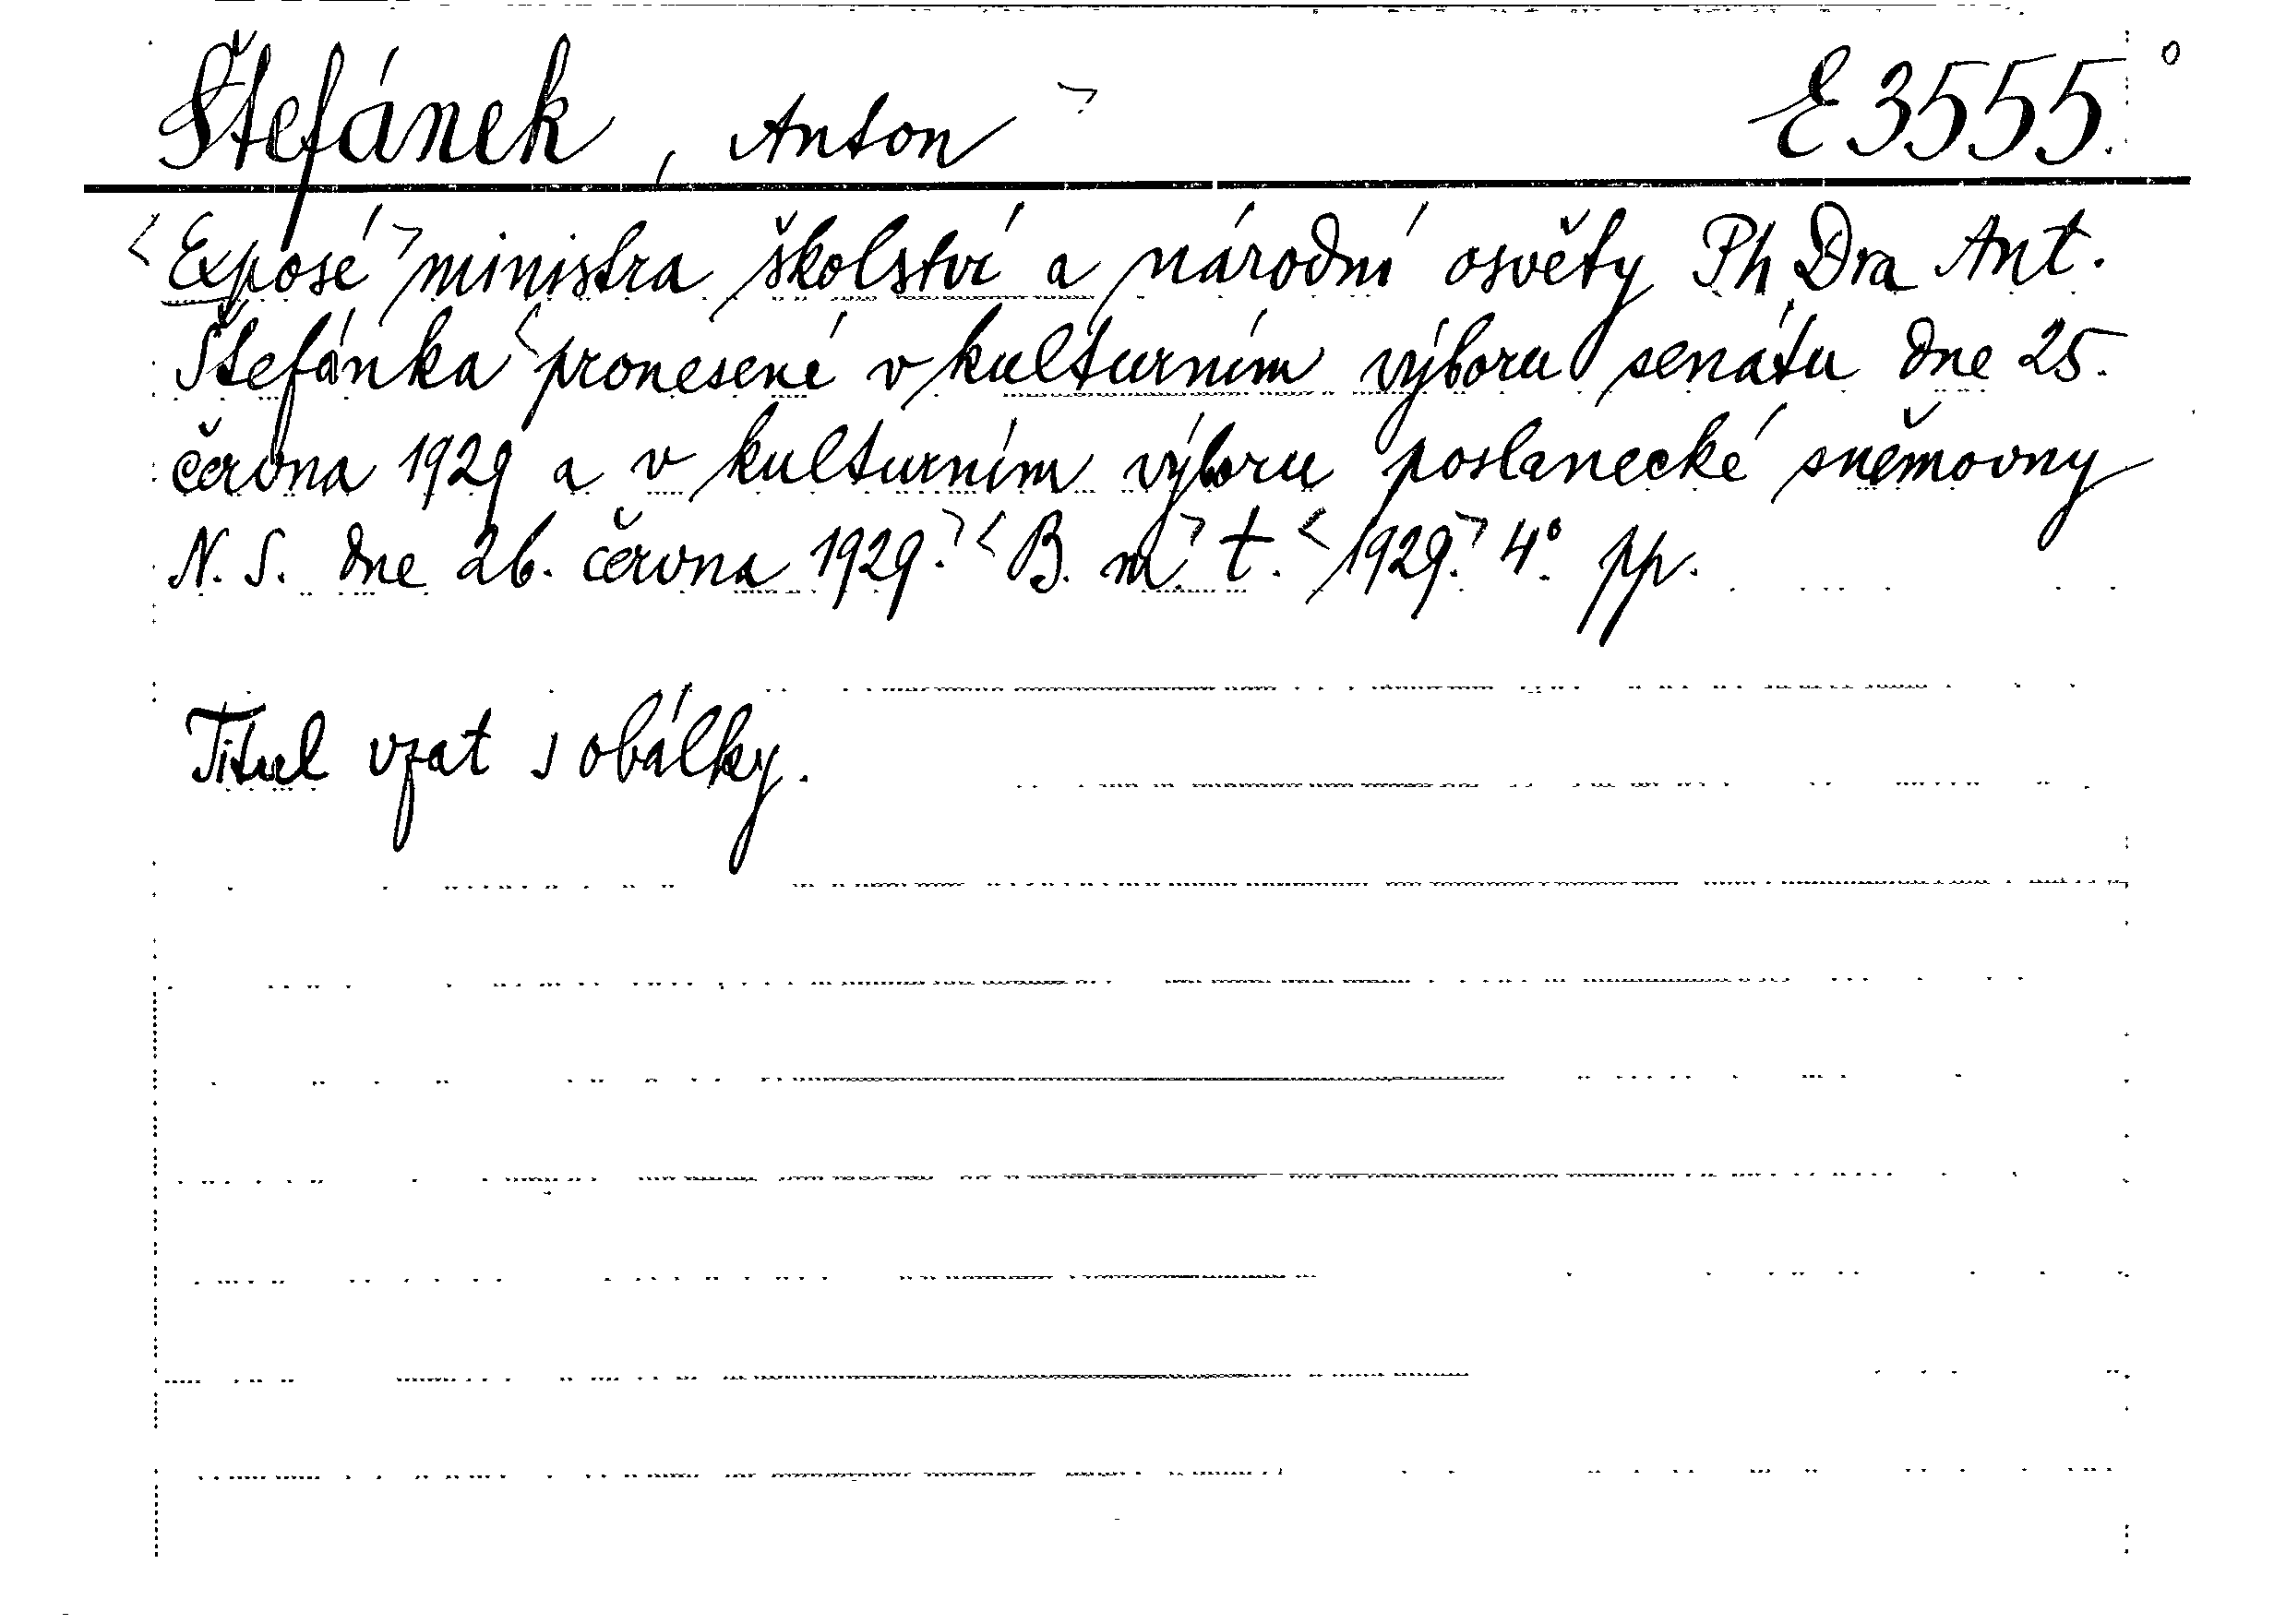 Štefánek, Anton E 3555.
Exposé ministra školství a národní osvěty Ph Dra Ant.
Štefánka pronesené v kulturním výboru senátu dne 25.
června 1929 a v kulturním výboru poslanecké sněmovny
N. S. dne 26. června 1929. B. m. t. 1929. 4°. pp.
Titul vzat s obálky.